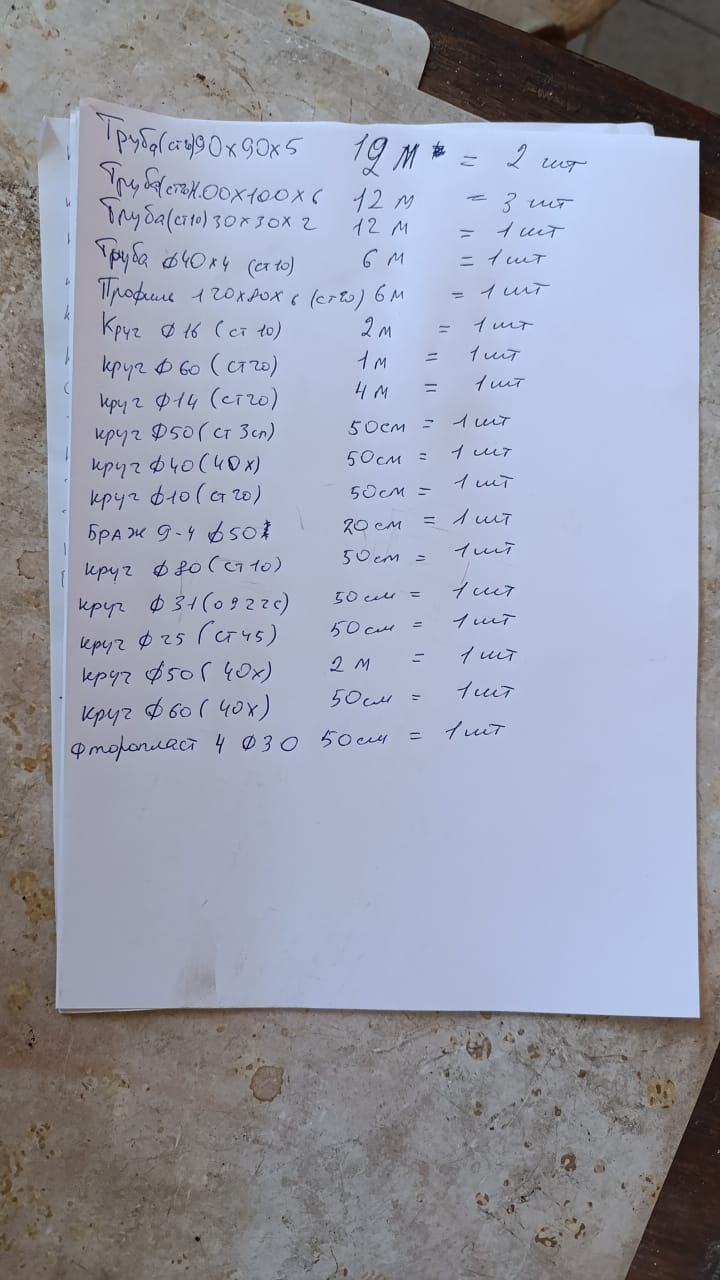 Труба(ст20)90х90х5 12 м = 2 шт
Труба(ст20)100х100х6 12 м = 3 шт
Труба(ст10)30х30х2 12 м = 1 шт
Труба ф40х4 (ст10) 6 м = 1 шт
Профиль 120х80х6 (ст20) 6м = 1 шт
Круг ф16 (ст 10) 2 м = 1 шт
круг ф60 (ст20) 1 м = 1 шт
круг ф14 (ст20) 4 м = 1 шт
круг ф50 (ст 3сп) 50см = 1 шт
круг ф40 (40х) 50см = 1 шт
круг ф10 (ст20) 50см = 1 шт
БРАЖ 9-4 ф50 20см = 1 шт
круг (ст10) 50см = 1 шт
круг ф31 (09г2с) 50см = 1 шт
круг ф25 (ст45) 50см = 1 шт
круг ф50 (40х) 2 м = 1 шт
круг ф60 (40х) 50см = 1 шт
Фторопласт 4 ф30 50см = 1 шт